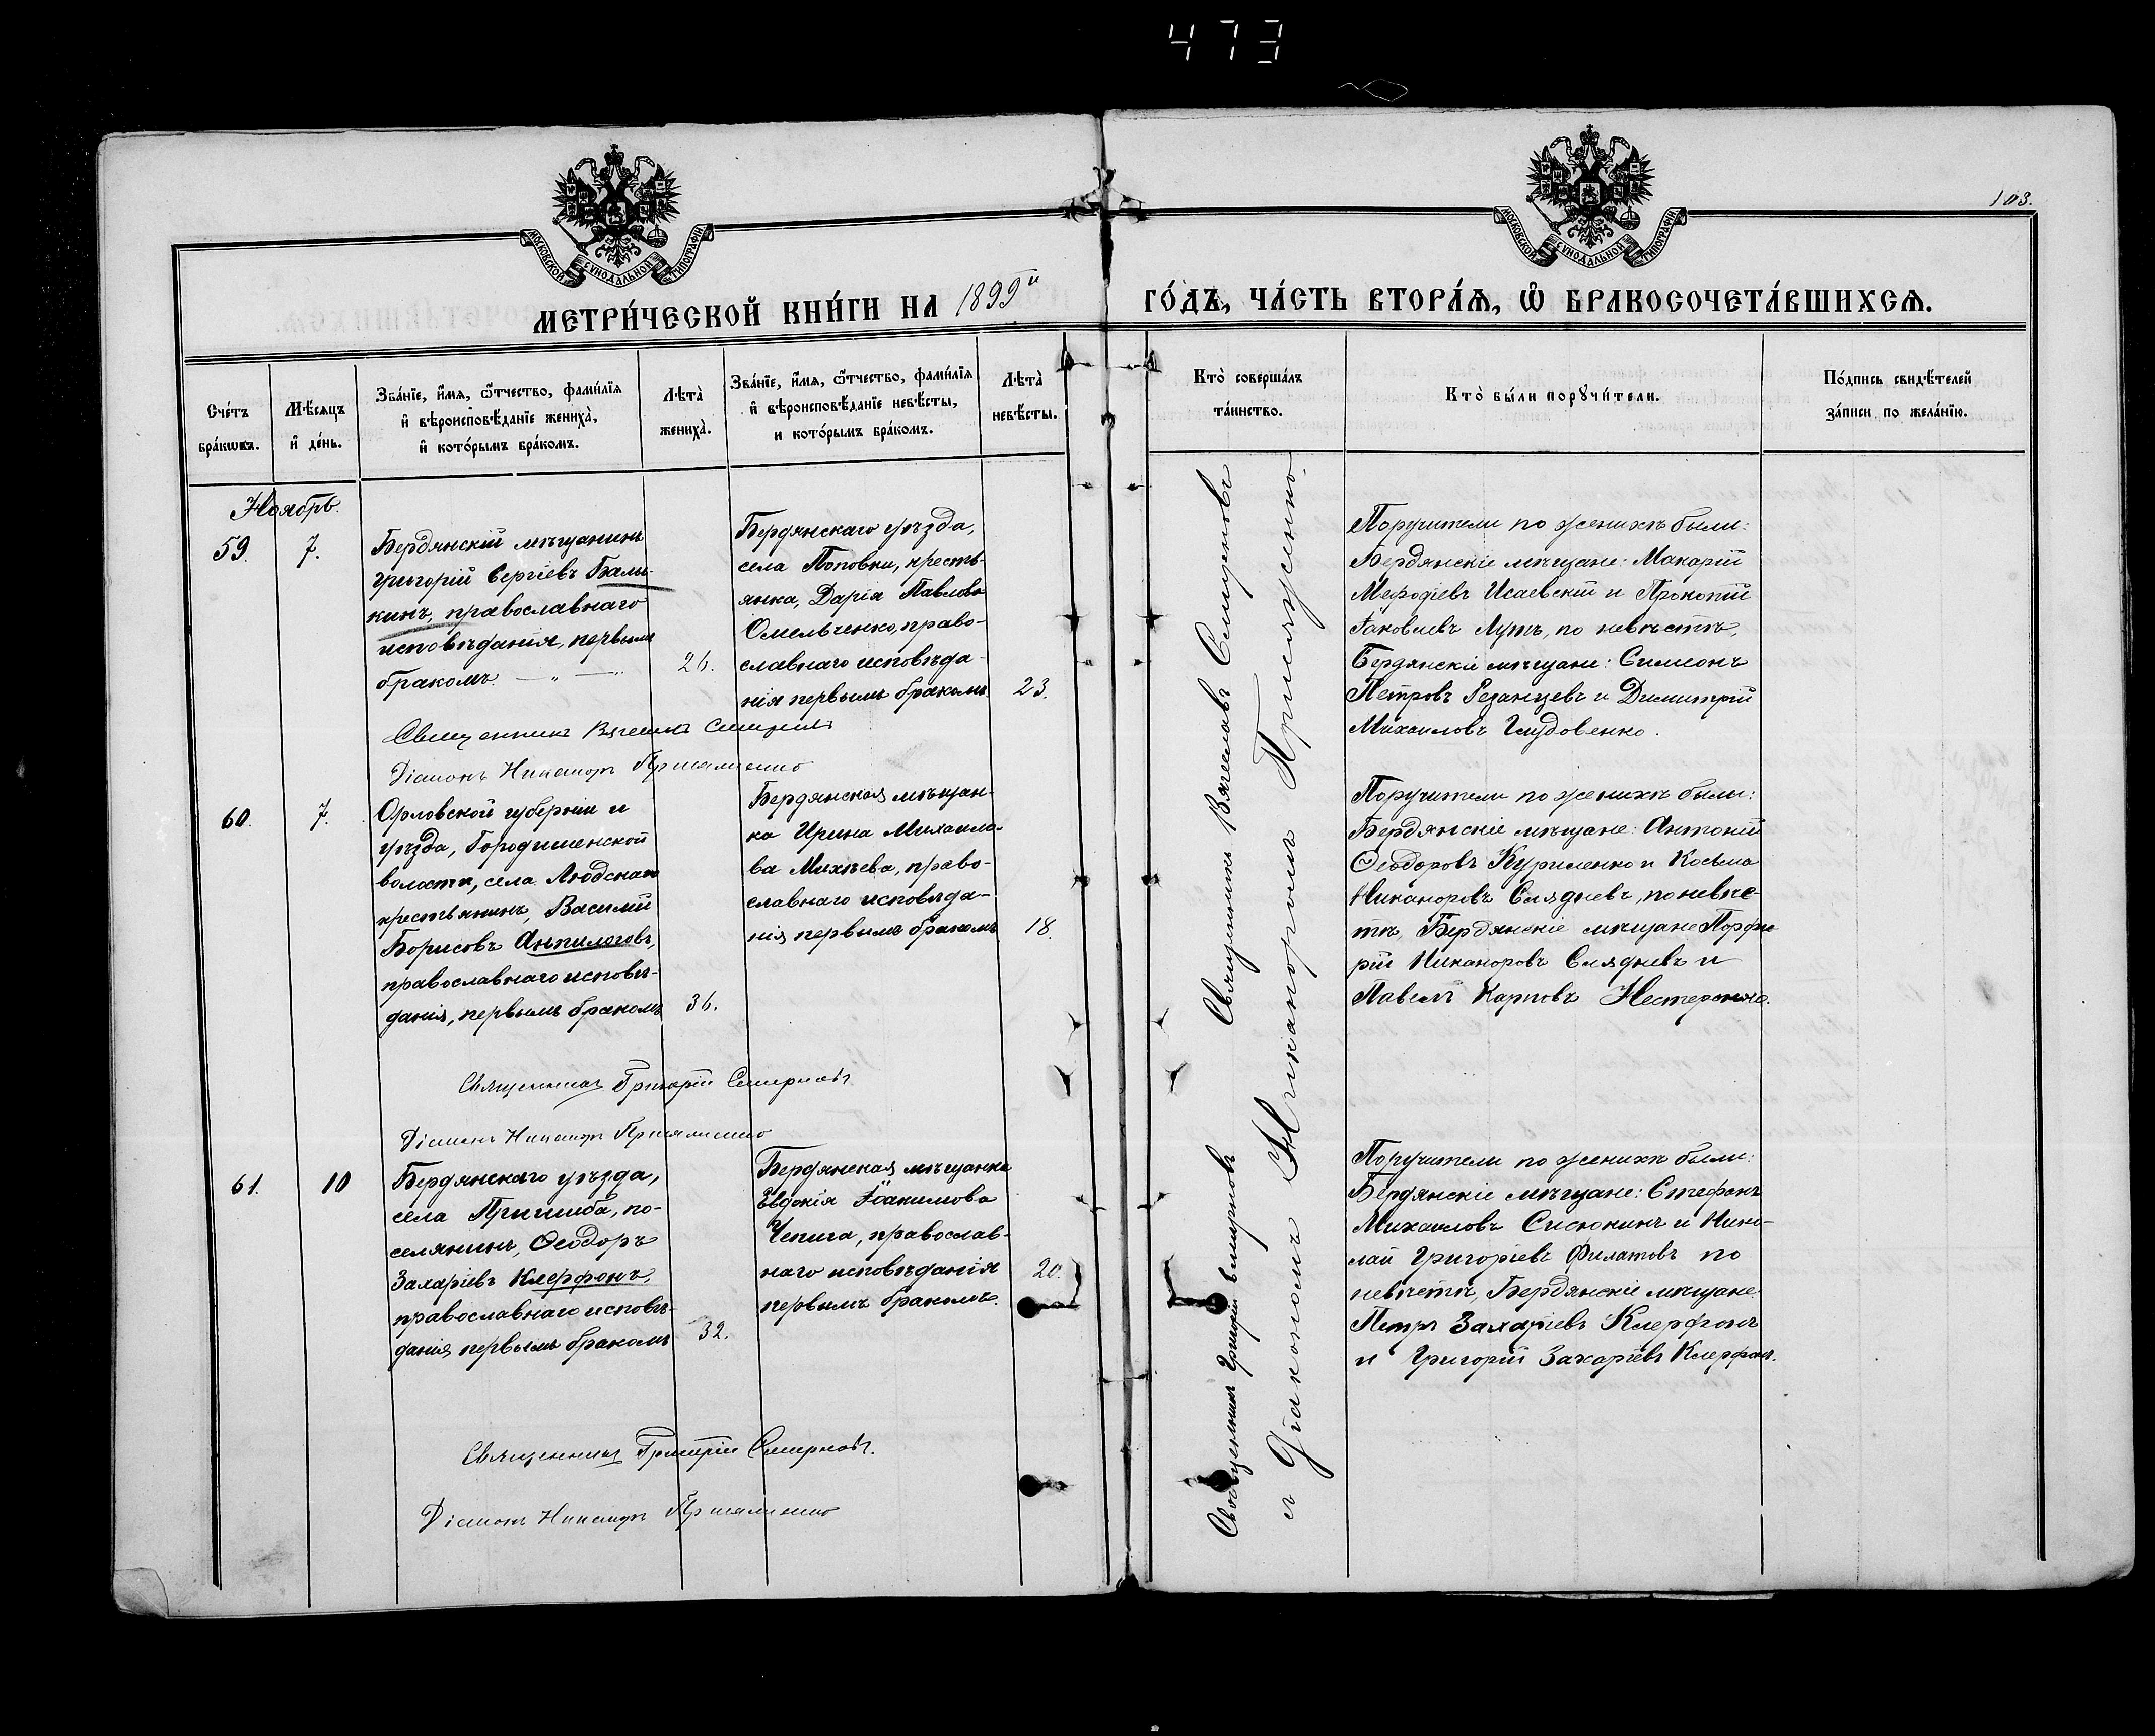 473
103.
МОСКОВСКОЙ СѴНОДАЛЬНОЙ ТИПОГРАФІИ
МОСКОВСКОЙ СѴНОДАЛЬНОЙ ТИПОГРАФІИ
МЕТРИ́ЧЕСКОЙ КНИ́ГИ НА 1899й ГО́ДЪ, ЧА́СТЬ ВТОРА́Ѧ, Ѽ БРАКОСОЧЕТА́ВШИХСѦ.
Сче́тъ бра́кѡвъ.
Мѣ́сяцъ и҆ де́нь.
Зва́нїе, и҆́мѧ, ѻ҆́тчество, фами́лїѧ
и҆ вѣроисповѣ́данїе жениха̀,
и҆ кото́рымъ бра́комъ.
Лѣта̀ жениха̀.
Зва́нїе, и҆́мѧ, ѻ҆́тчество, фами́лїѧ
и҆ вѣроисповѣ́данїе невѣ́сты,
и кото́рымъ бра́комъ.
Лѣта̀ невѣ́сты.
Кто̀ соверша́лъ та́инство.
Кто̀ бы́ли порꙋчи́тели.
По́дпись свидѣ́телей за́писи по жела́нїю.
Ноябрь.
59.
7.
Бердянскій мѣщанинъ
Григорій Сергіевъ Балы-
кинъ, православнаго
исповѣданія, первымъ
бракомъ. — " —
26.
Бердянскаго уѣзда,
села Поповки, кресть-
янка, Дарія Павлова
Омельченко, право-
славнаго исповѣда-
нія первымъ бракомъ
23.
Поручители по женихѣ были:
Бердянскіе мѣщане: Макарій
Меѳодіевъ Исаевскій и Прокопій
Іаковлевъ Лутъ, по невѣстѣ,
Бердянскіе мѣщане: Симеонъ
Петровъ Резанцевъ и Димитрій
Михаиловъ Гнудовенко.
Священникъ Вячеславъ Смирновъ
Діаконъ Никаноръ Пришляженко
60.
7.
Орловской губерніи и
уѣзда, Городищенской
волости, села Людскаго
крестьянинъ, Василій
Борисовъ Анпилоговъ,
православнаго исповѣ-
данія, первымъ бракомъ
36.
Бердянская мѣщан-
ка Ирина Михаило-
ва Михѣева, право-
славнаго исповѣда-
нія первымъ бракомъ
18.
Поручители по женихѣ были:
Бердянскіе мѣщане: Антоній
Ѳеодоровъ Куриленко и Косьма
Никаноровъ Слядневъ, по невѣс-
тѣ, Бердянскіе мѣщане Порфи
рій Никаноровъ Слядневъ и
Павелъ Карповъ Нестеренко.
Священникъ Григорій Смирновъ
Діаконъ Никаноръ Пришляженко
61.
10
Бердянскаго уѣзда,
села Пришиба, по-
селянинъ, Ѳеодоръ
Захаріевъ Клерфонъ,
православнаго исповѣ-
данія первымъ бракомъ
32.
Бердянская мѣщанка
Евдокія Іоакимова
Чепига, православ-
наго исповѣданія
первымъ бракомъ.
20.
Поручители по женихѣ были:
Бердянскіе мѣщане: Стефанъ
Михаиловъ Сисюкинъ и Нико-
лай Григоріевъ Филатовъ по
невѣстѣ, Бердянскіе мѣщане
Петръ Захаріевъ Клерфонъ
и Григорій Захаріевъ Клерфонъ.
Священникъ Григорій Смирновъ.
Діаконъ Никаноръ Пришляженко
Священникъ Вячеславъ Смирновъ
Священникъ Григорій Смирновъ
съ Діакономъ Никаноромъ Пришляженко.